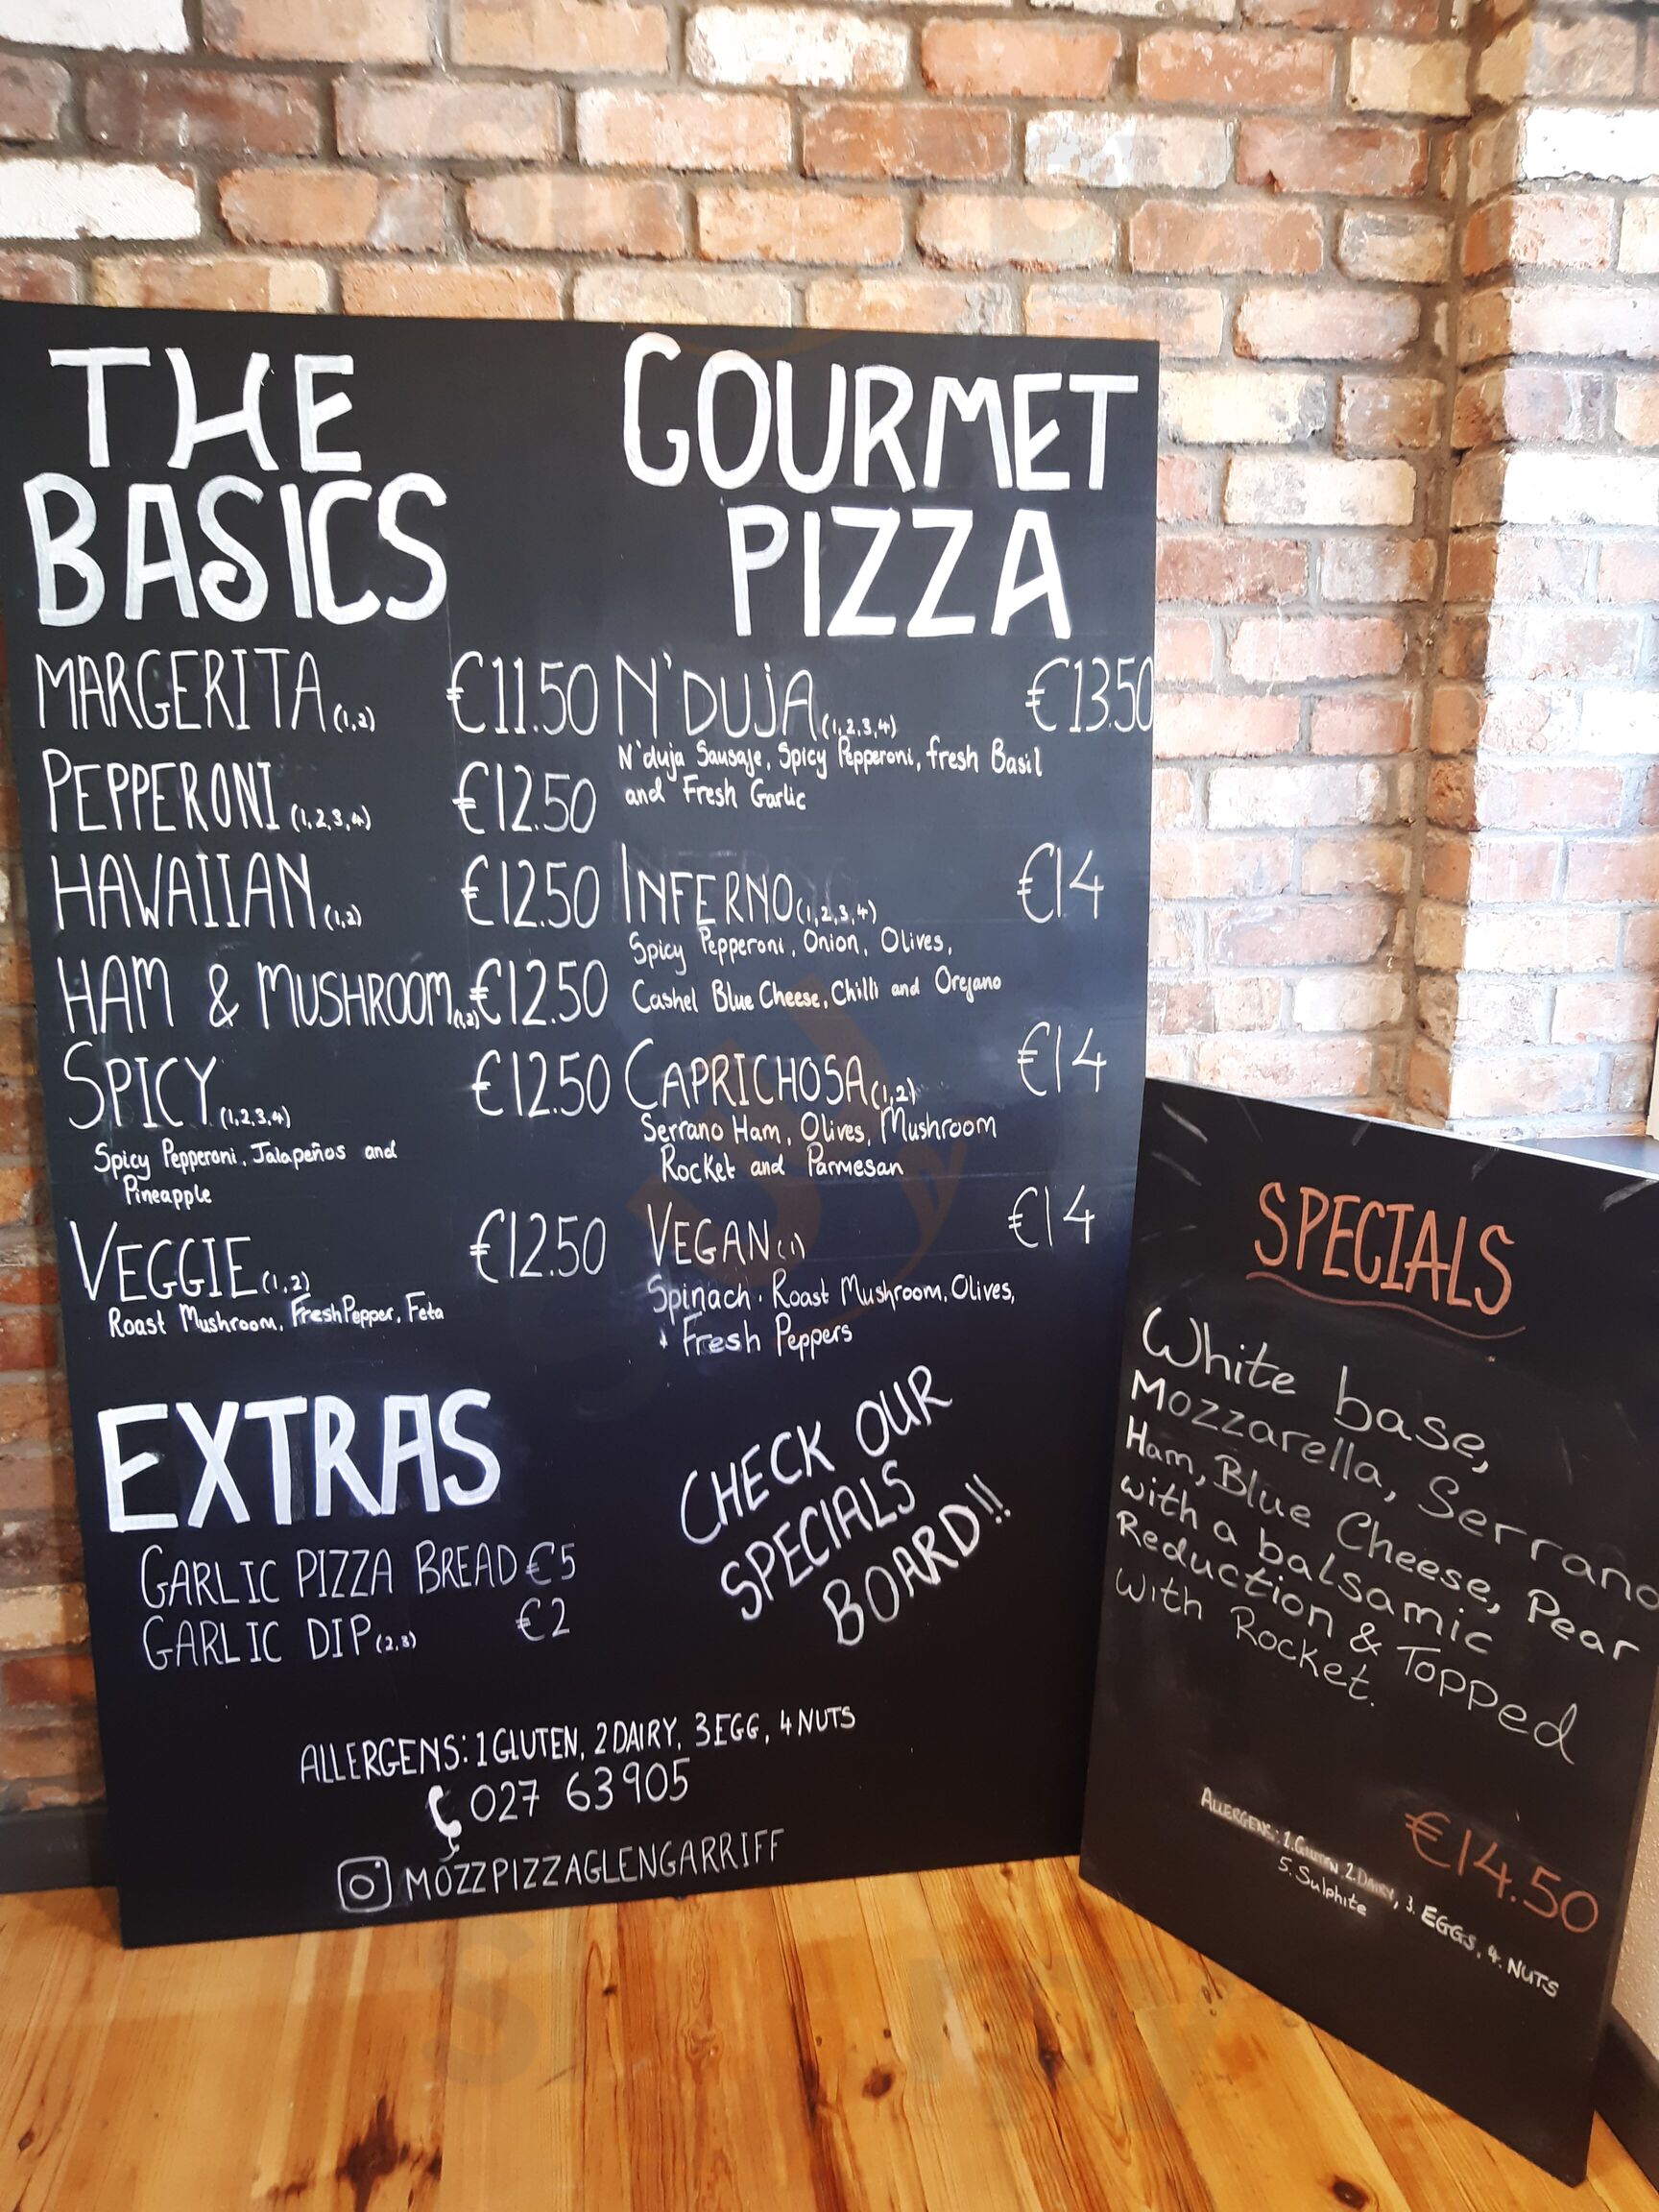 THE
BASICS
MARGERITA (1,2) €11.50
PEPPERONI (1,2,3,4) €12.50
HAWAIIAN (1,2) €12.50
HAM & MUSHROOM (1,2) €12.50
SPICY (1,2,3,4) €12.50
Spicy Pepperoni, Jalapeños and
Pineapple
VEGGIE (1,2) €12.50
Roast Mushroom, Fresh Pepper, Feta
EXTRAS
GARLIC PIZZA BREAD €5
GARLIC DIP (2,3) €2
GOURMET
PIZZA
N'DUJA (1,2,3,4) €13.50
N'duja Sausage, Spicy Pepperoni, fresh Basil
and Fresh Garlic
INFERNO (1,2,3,4) €14
Spicy Pepperoni, Onion, Olives,
Cashel Blue Cheese, Chilli and Oregano
CAPRICHOSA (1,2) €14
Serrano Ham, Olives, Mushroom
Rocket and Parmesan
VEGAN (1) €14
Spinach, Roast Mushroom, Olives,
+ Fresh Peppers
CHECK OUR
SPECIALS
BOARD!!
ALLERGENS: 1 GLUTEN, 2 DAIRY, 3 EGG, 4 NUTS
027 63905
MOZZPIZZAGLENGARRIFF
SPECIALS
White base,
Mozzarella, Serrano
Ham, Blue Cheese, Pear
with a balsamic
Reduction & Topped
with Rocket.
€14.50
ALLERGENS: 1. GLUTEN 2. DAIRY, 3. EGGS, 4. NUTS
5. Sulphite